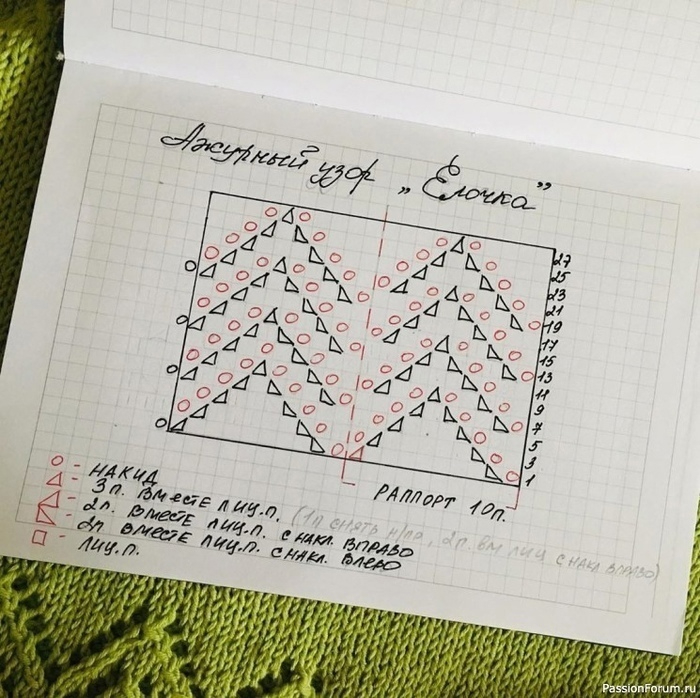 Ажурный узор „Ёлочка”
27
25
23
21
19
17
15
13
11
9
7
5
3
1
РАППОРТ 10п.
- НАКИД
- 3п. ВМЕСТЕ ЛИЦ.П. (1п СНЯТЬ Н/ПР, 2п. ВМ ЛИЦ С НАКЛ ВПРАВО)
- 2п. ВМЕСТЕ ЛИЦ.П. С НАКЛ. ВПРАВО
- 2п ВМЕСТЕ ЛИЦ.П. С НАКЛ. ВЛЕВО
- ЛИЦ.П.
PassionForum.ru